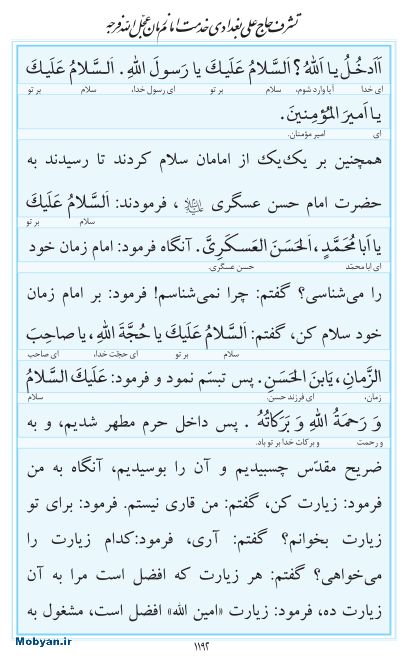 تشرف حاج علی بغدادی خدمت امام زمان عجّل الله فرجه
ءَاَدخُلُ یا اَللهُ؟ اَلسَّلامُ عَلَیكَ یا رَسولَ اللهِ. اَلسَّلامُ عَلَیكَ
ای خدا آیا وارد شوم، سلام بر تو ای رسول خدا، سلام بر تو
یا اَمیرَ المُؤمِنینَ.
ای امیر مؤمنان.
همچنین بر یک‌یک از امامان سلام کردند تا رسیدند به
حضرت امام حسن عسگری علیه السلام، فرمودند: اَلسَّلامُ عَلَیكَ
سلام بر تو
یا اَبا مُحَمَّدٍ، اَلحَسَنَ العَسكَریَّ. آنگاه فرمود: امام زمان خود
ای ابا محمّد حسن عسگری.
را می‌شناسی؟ گفتم: چرا نمی‌شناسم! فرمود: بر امام زمان
خود سلام کن، گفتم: اَلسَّلامُ عَلَیكَ یا حُجَّةَ اللهِ، یا صاحِبَ
سلام بر تو ای حجت خدا، ای صاحب
الزَّمانِ، یَابنَ الحَسَنِ. پس تبسّم نمود و فرمود: عَلَیكَ السَّلامُ
زمان، ای فرزند حسن. سلام
وَ رَحمَةُ اللهِ وَ بَرَكاتُهُ . پس داخل حرم مطهر شدیم، و به
و رحمت و برکات خدا بر تو باد.
ضریح مقدّس چسبیدیم و آن را بوسیدیم، آنگاه به من
فرمود: زیارت کن، گفتم: من قاری نیستم. فرمود: برای تو
زیارت بخوانم؟ گفتم: آری، فرمود:کدام زیارت را
می‌خواهی؟ گفتم: هر زیارت که افضل است مرا به آن
زیارت ده، فرمود: زیارت «امین الله» افضل است، مشغول به
Mobyan.ir
۱۱۹۲